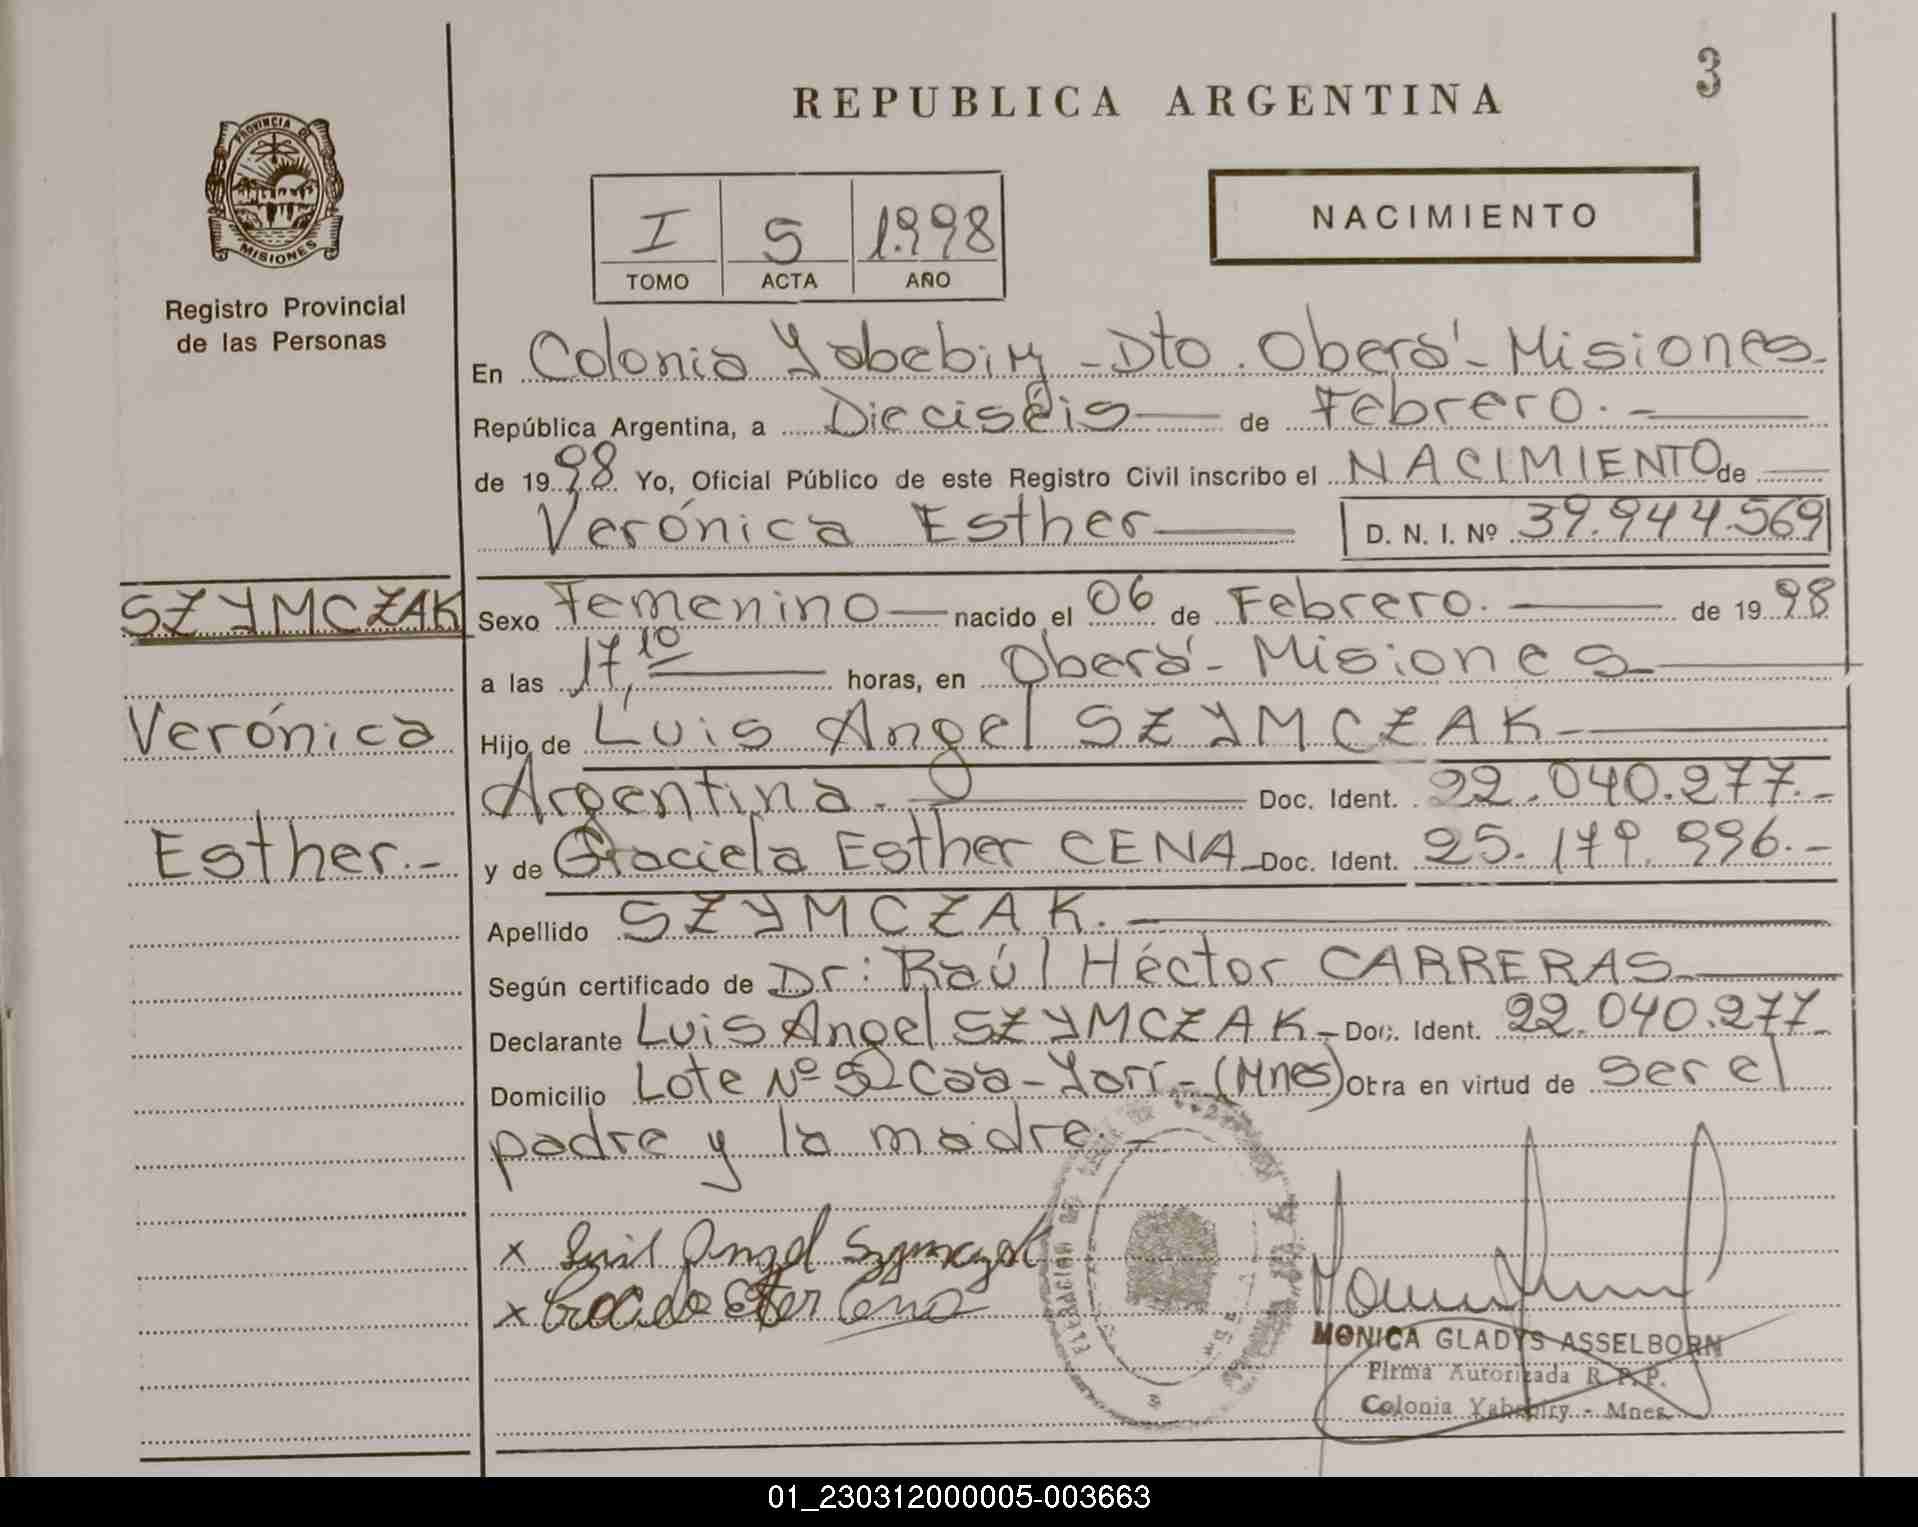 3
REPUBLICA ARGENTINA
PROVINCIA DE
MISIONES
Registro Provincial
de las Personas
I S 1.998
TOMO ACTA AÑO
NACIMIENTO
En Colonia Yabebiry - Dto. Oberá - Misiones
República Argentina, a Dieciséis de Febrero. -
de 1998. Yo, Oficial Público de este Registro Civil inscribo el NACIMIENTO de
Verónica Esther D. N. I. Nº 39.944.569
SZYMCZAK
Verónica
Esther.-
Sexo Femenino nacido el 06 de Febrero. de 1998
a las 17,10 horas, en Oberá - Misiones
Hijo de Luis Angel SZYMCZAK
Argentina. Doc. Ident. 22.040.277.-
y de Graciela Esther CENA Doc. Ident. 25.179.996.-
Apellido SZYMCZAK.
Según certificado de Dr: Raúl Héctor CARRERAS
Declarante Luis Angel SZYMCZAK - Doc. Ident. 22.040.277-
Domicilio Lote Nº 52 Caa-Yarí - (Mnes) Otra en virtud de ser el
padre y la madre. -
x Luis Angel Szymczak
x Graciela Ester Cena
MONICA GLADYS ASSELBORN
Firma Autorizada R.P.P.
Colonia Yabebiry - Mnes.
01_230312000005-003663